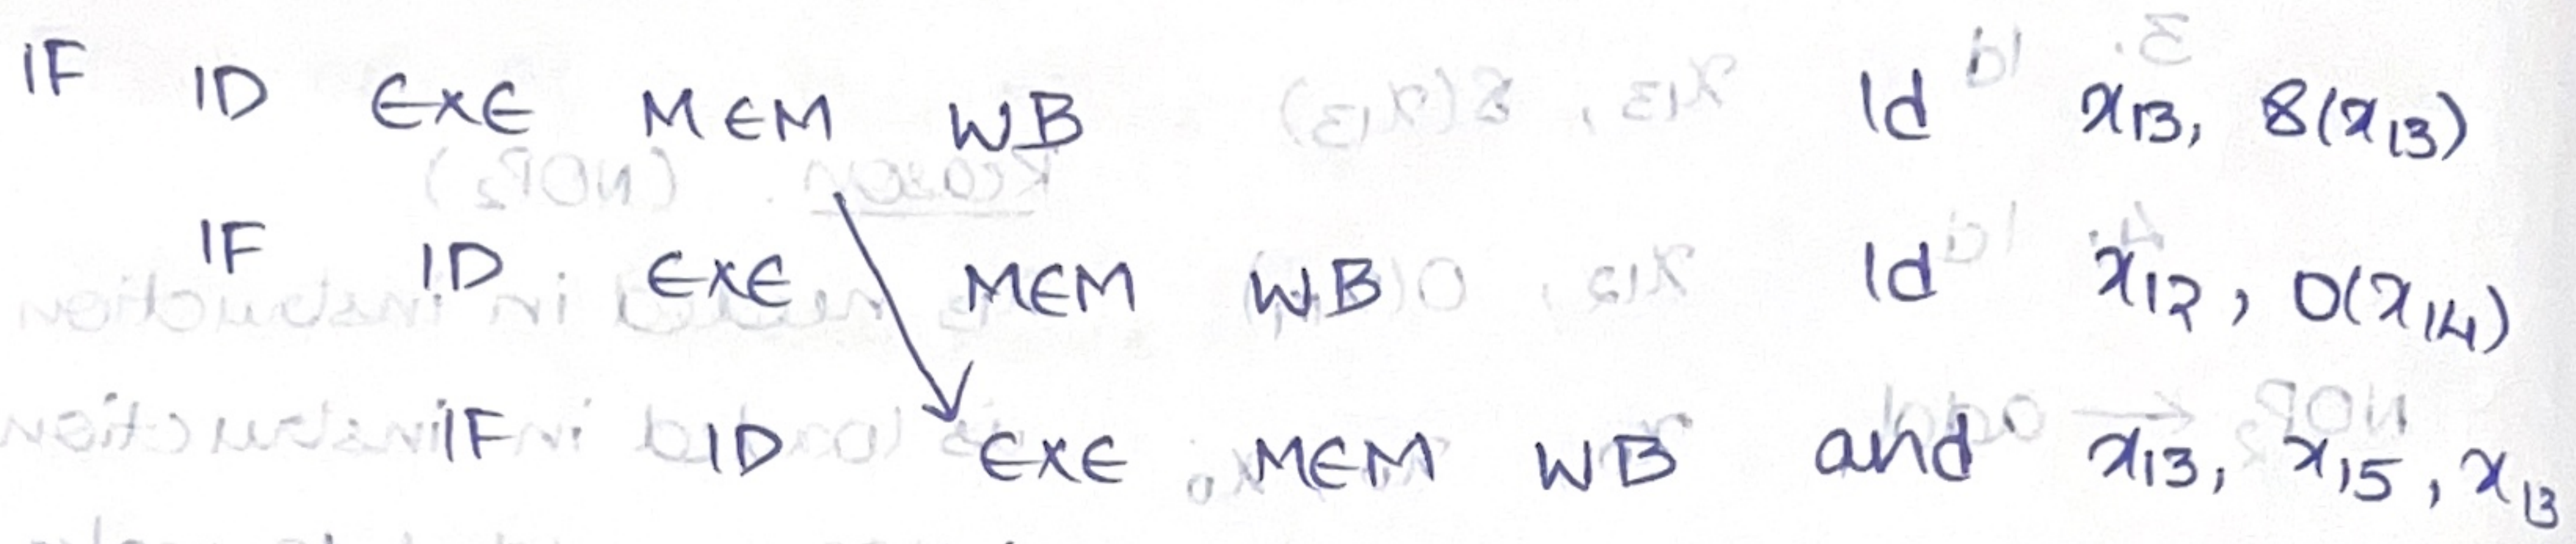 IF ID EXE MEM WB ld x13, 8(x13)
IF ID EXE MEM WB ld x12, 0(x14)
IF ID EXE MEM WB and x13, x15, x13